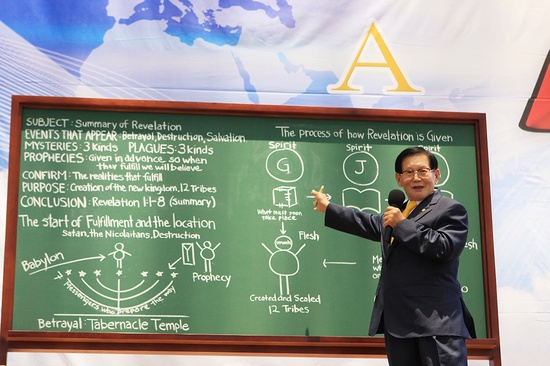 A
SUBJECT: Summary of Revelation
EVENTS THAT APPEAR: Betrayal, Destruction, Salvation
MYSTERIES: 3 Kinds PLAGUES: 3 Kinds
PROPHECIES: Given in advance so when
they fulfill we will believe
CONFIRM: The realities that fulfill
PURPOSE: Creation of the new kingdom, 12 Tribes
CONCLUSION: Revelation 1:1-8 (Summary)
The start of Fulfillment and the location
Satan, the Nicolaitans, Destruction
Babylon
Prophecy
Messengers who prepare the way
Betrayal: Tabernacle Temple
The process of how Revelation is Given
Spirit Spirit Spirit
G J
What must soon
take place
Flesh
Created and Sealed
12 Tribes